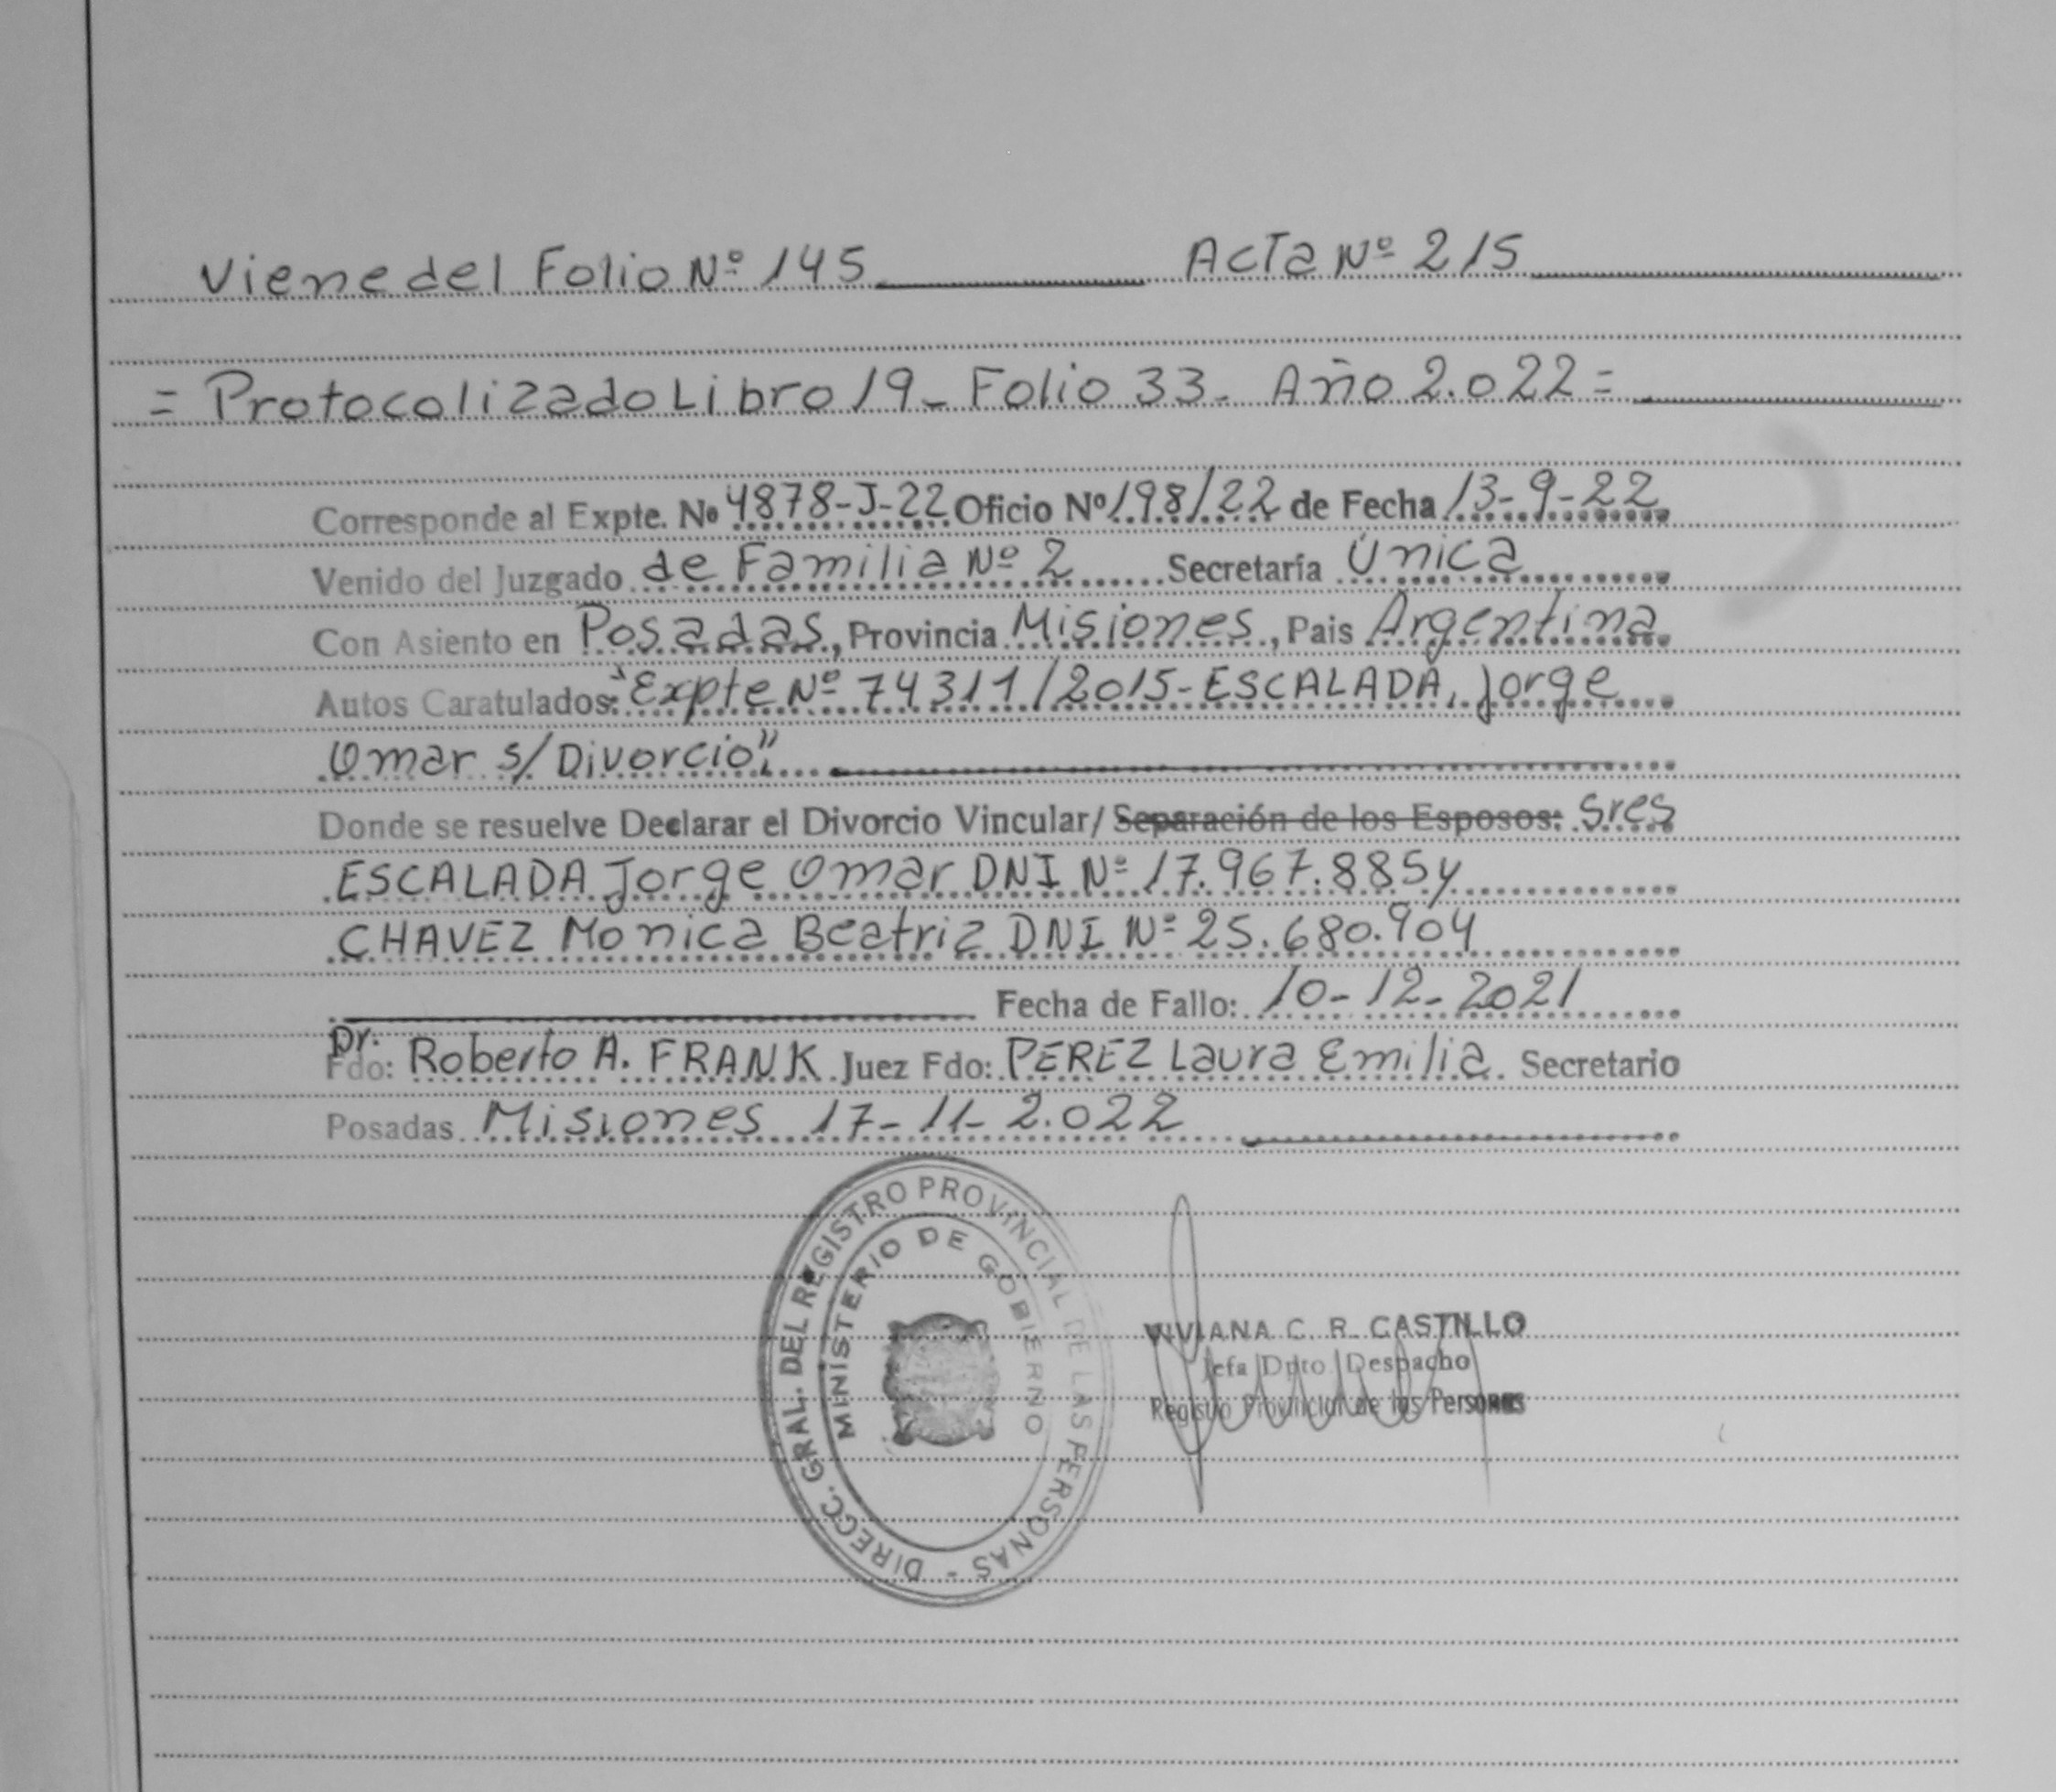 Viene del Folio Nº 145 Acta Nº 215
= Protocolizado Libro 19- Folio 33- Año 2.022=
Corresponde al Expte. Nº 4878-J-22 Oficio Nº 198/22 de Fecha 13-9-22
Venido del Juzgado de Familia Nº 2 Secretaría Única
Con Asiento en Posadas, Provincia Misiones, Pais Argentina
Autos Caratulados: "Expte Nº 74311/2015-ESCALADA, Jorge
Omar s/Divorcio"
Donde se resuelve Declarar el Divorcio Vincular/ Separación de los Esposos: Sres
ESCALADA Jorge Omar DNI Nº 17.967.885 y
CHAVEZ Monica Beatriz DNI Nº 25.680.904
Fecha de Fallo: 10-12-2021
Dr.
Fdo: Roberto A. FRANK Juez Fdo: PEREZ Laura Emilia Secretario
Posadas Misiones 17-11-2.022
DIRECC. GRAL. DEL REGISTRO PROVINCIAL DE LAS PERSONAS -
MINISTERIO DE GOBIERNO
VIVIANA C. R. CASTILLO
Jefa Dpto Despacho
Registro Provincial de las Personas